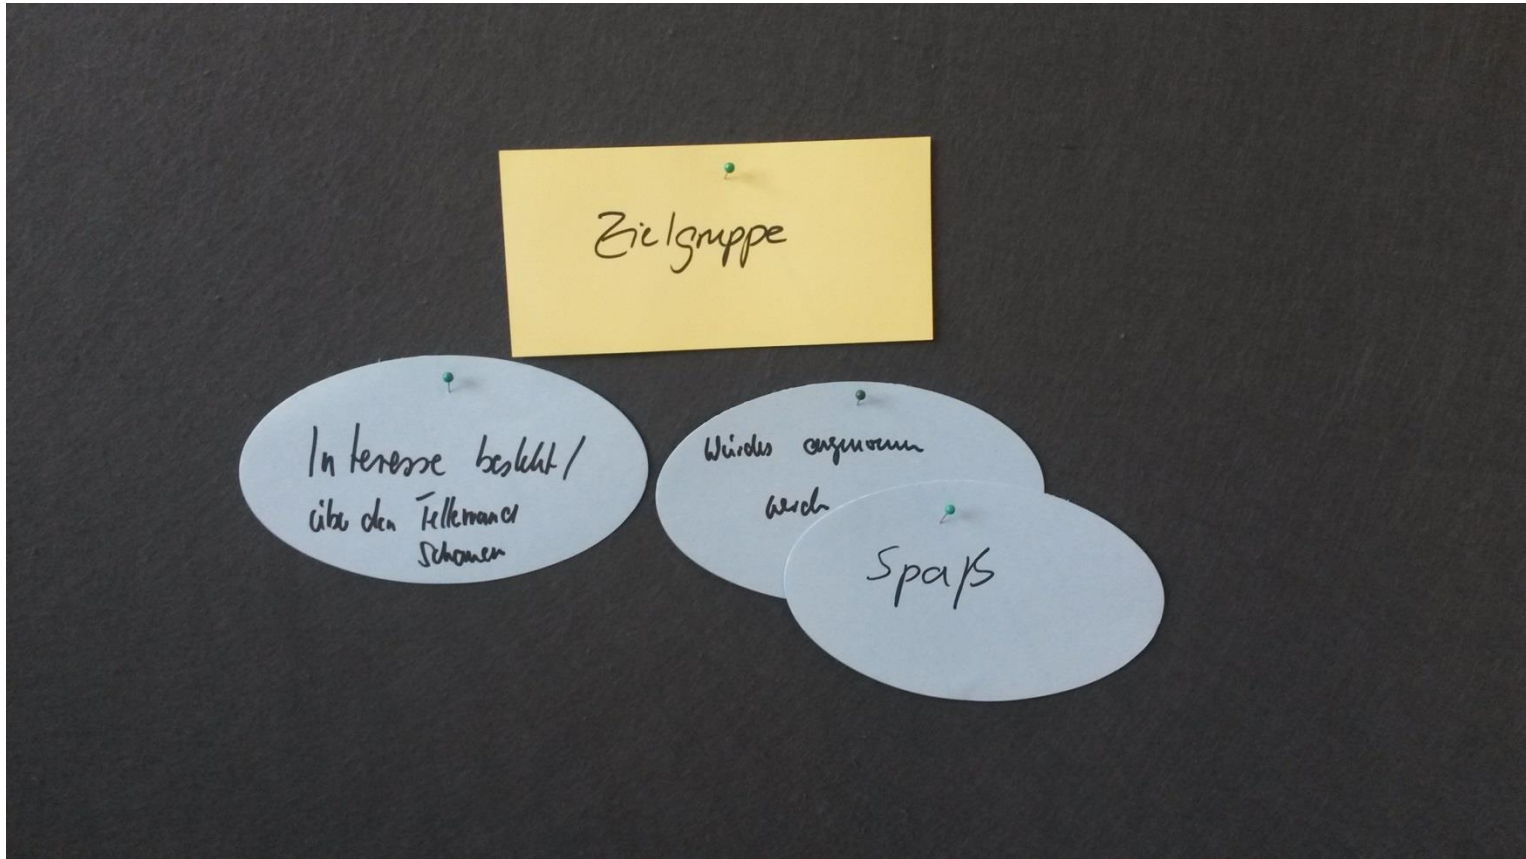 Zielgruppe
Interesse besteht /
über den Tellerrand
schauen
werden
Spaß